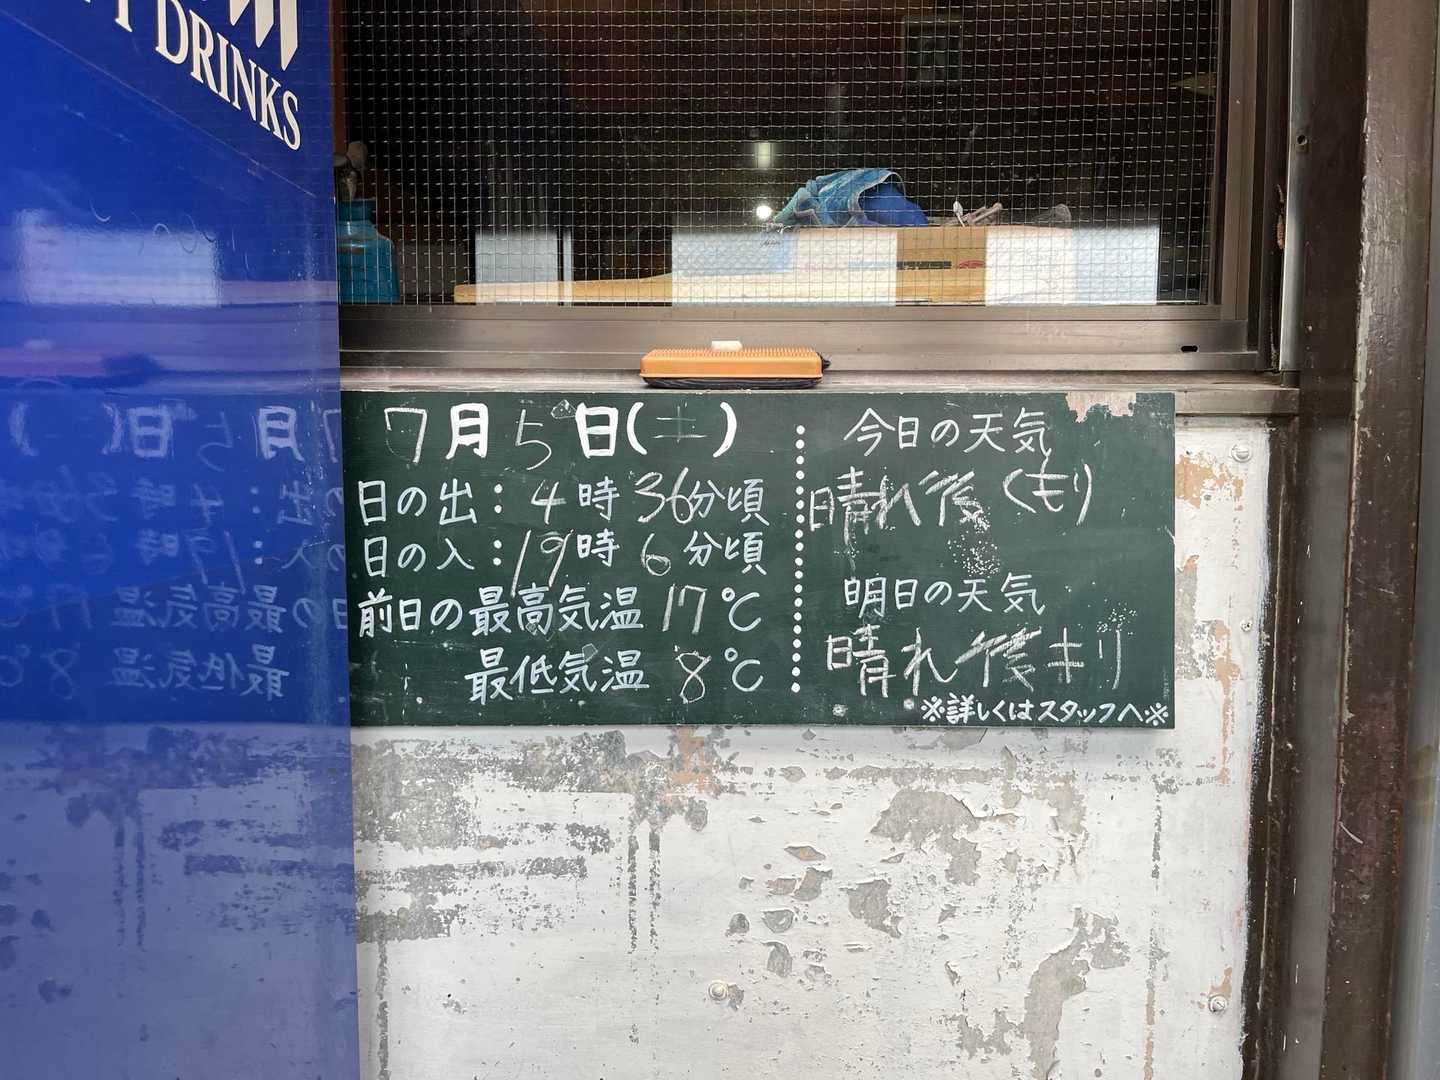 DRINKS
7月5日(土)
日の出：4時36分頃
日の入：19時6分頃
前日の最高気温 17℃
最低気温 8℃
今日の天気
晴れ後くもり
明日の天気
晴れ後キリ
※詳しくはスタッフへ※